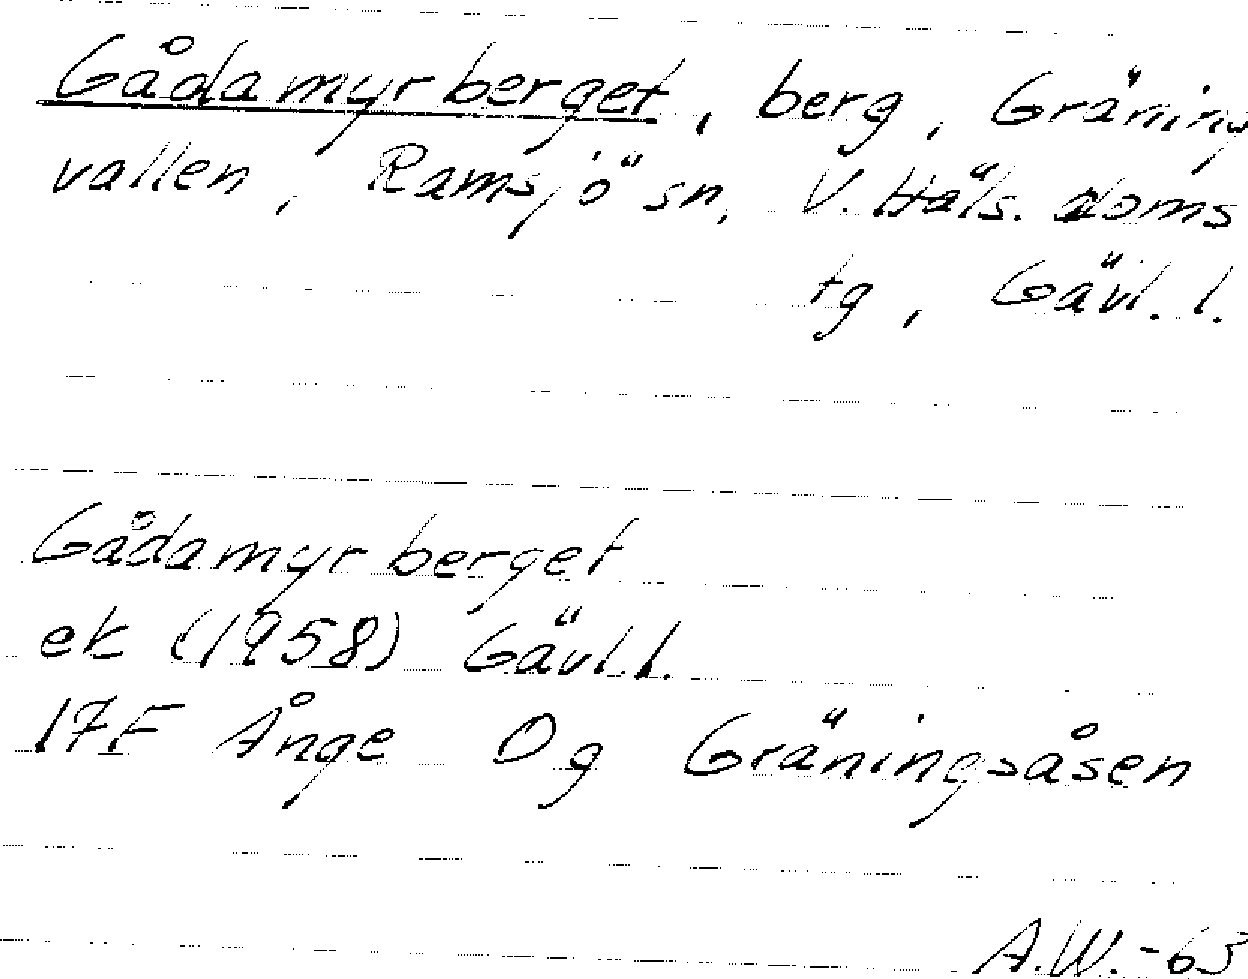 Gådamyrberget, berg, Gräning
vallen, Ramsjö sn, V. Häls. doms
tg, Gävl. l.
Gådamyrberget
ek (1958) Gävl. l.
17F Ånge Og Gräningsåsen
A.W.-63